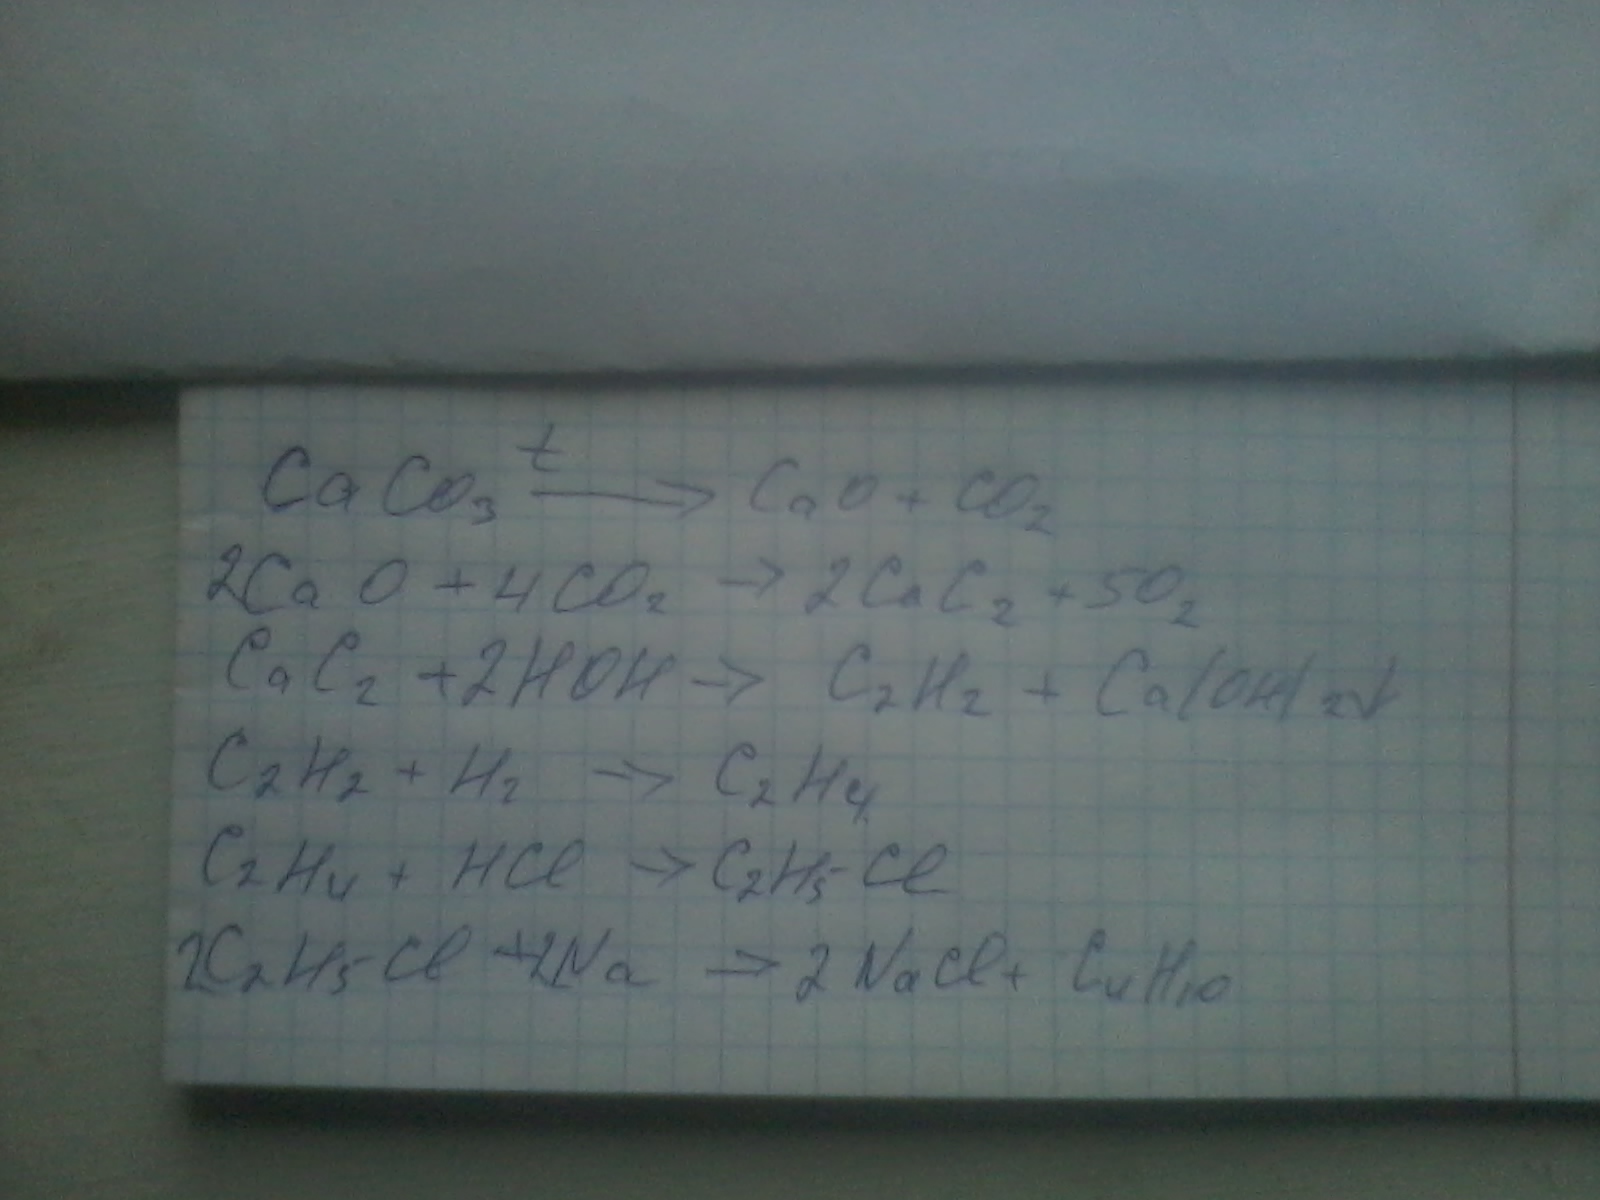 CaCO₃ t→ CaO + CO₂
2CaO + 4CO₂ → 2CaC₂ + 5O₂
CaC₂ + 2HOH → C₂H₂ + Ca(OH)₂↓
C₂H₂ + H₂ → C₂H₄
C₂H₄ + HCl → C₂H₅Cl
2C₂H₅Cl + 2Na → 2NaCl + C₄H₁₀